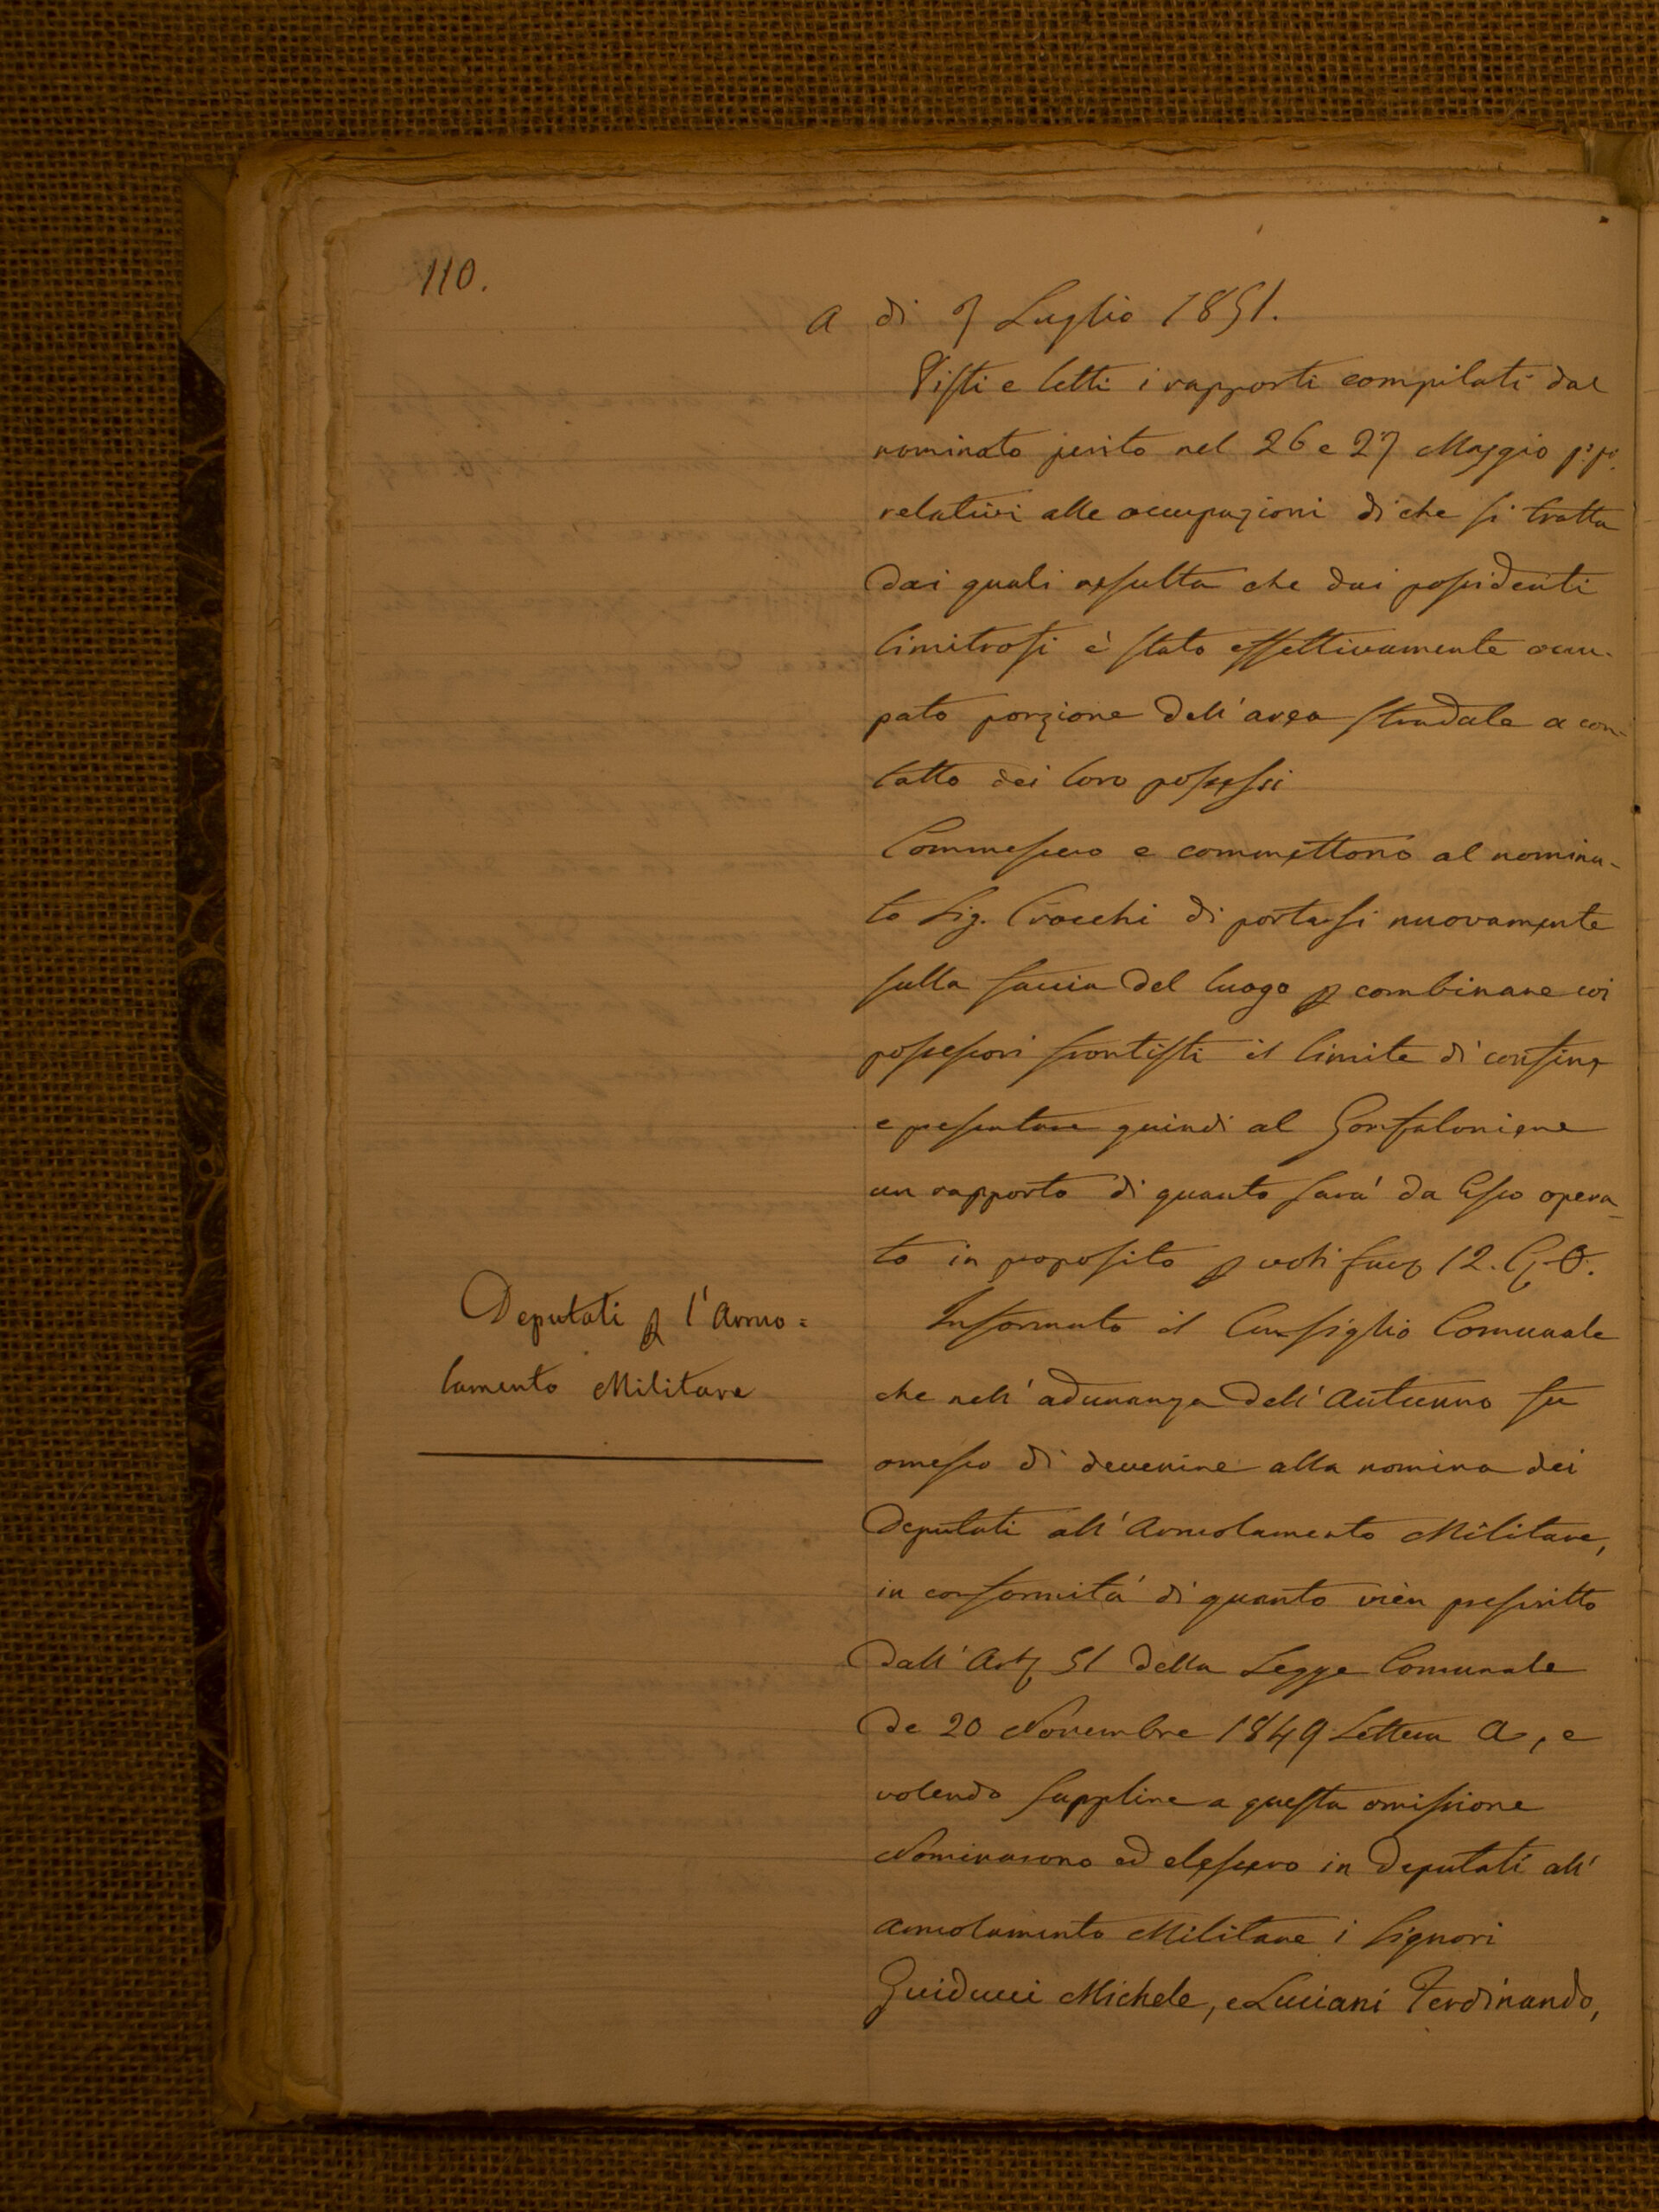 110.
A di 7 Luglio 1851.
Visti e letti i rapporti compilati dal
nominato perito nel 26 e 27 Maggio p.º p.º
relativi alle occupazioni di che si tratta
dai quali resulta che dai possidenti
limitrofi è stato effettivamente occu-
pato porzione dell'area stradale a con-
tatto dei loro possessi
Commessero e commettono al nomina-
to Sig. Crocchi di portarsi nuovamente
sulla faccia del luogo p combinare coi
possessori frontisti il limite di confine
e presentare quindi al Gonfaloniere
un rapporto di quanto sarà da Esso opera-
to in proposito p voti fav. 12. C. O.
Deputati p l'Arruo=
lamento Militare
Informato il Consiglio Comunale
che nell'adunanza dell'Autunno fu
omesso di devenire alla nomina dei
Deputati all'Arruolamento Militare,
in conformità di quanto vien prescritto
dall'Art. 51 della Legge Comunale
de 20 Novembre 1849 Lettera A, e
volendo supplire a questa omissione
Nominarono ed elessero in Deputati all'
Arruolamento Militare i Signori
Guiducci Michele, e Luciani Ferdinando,